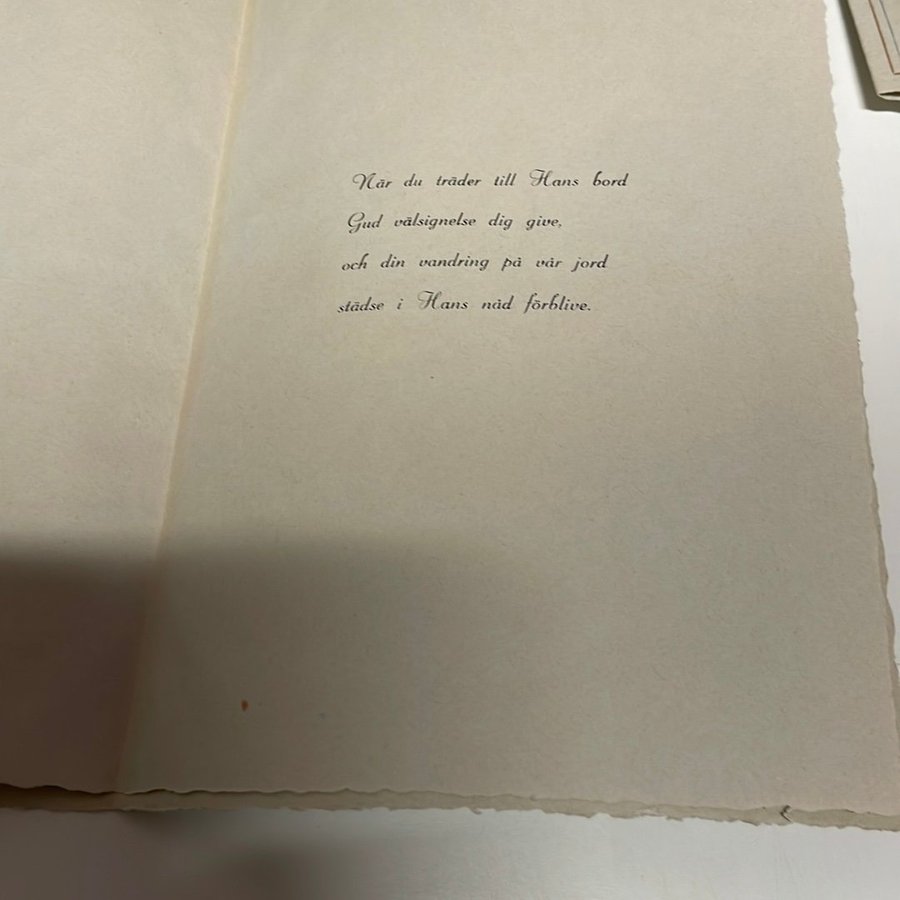 När du träder till Hans bord
Gud välsignelse dig give,
och din vandring på vår jord
städse i Hans nåd förblive.